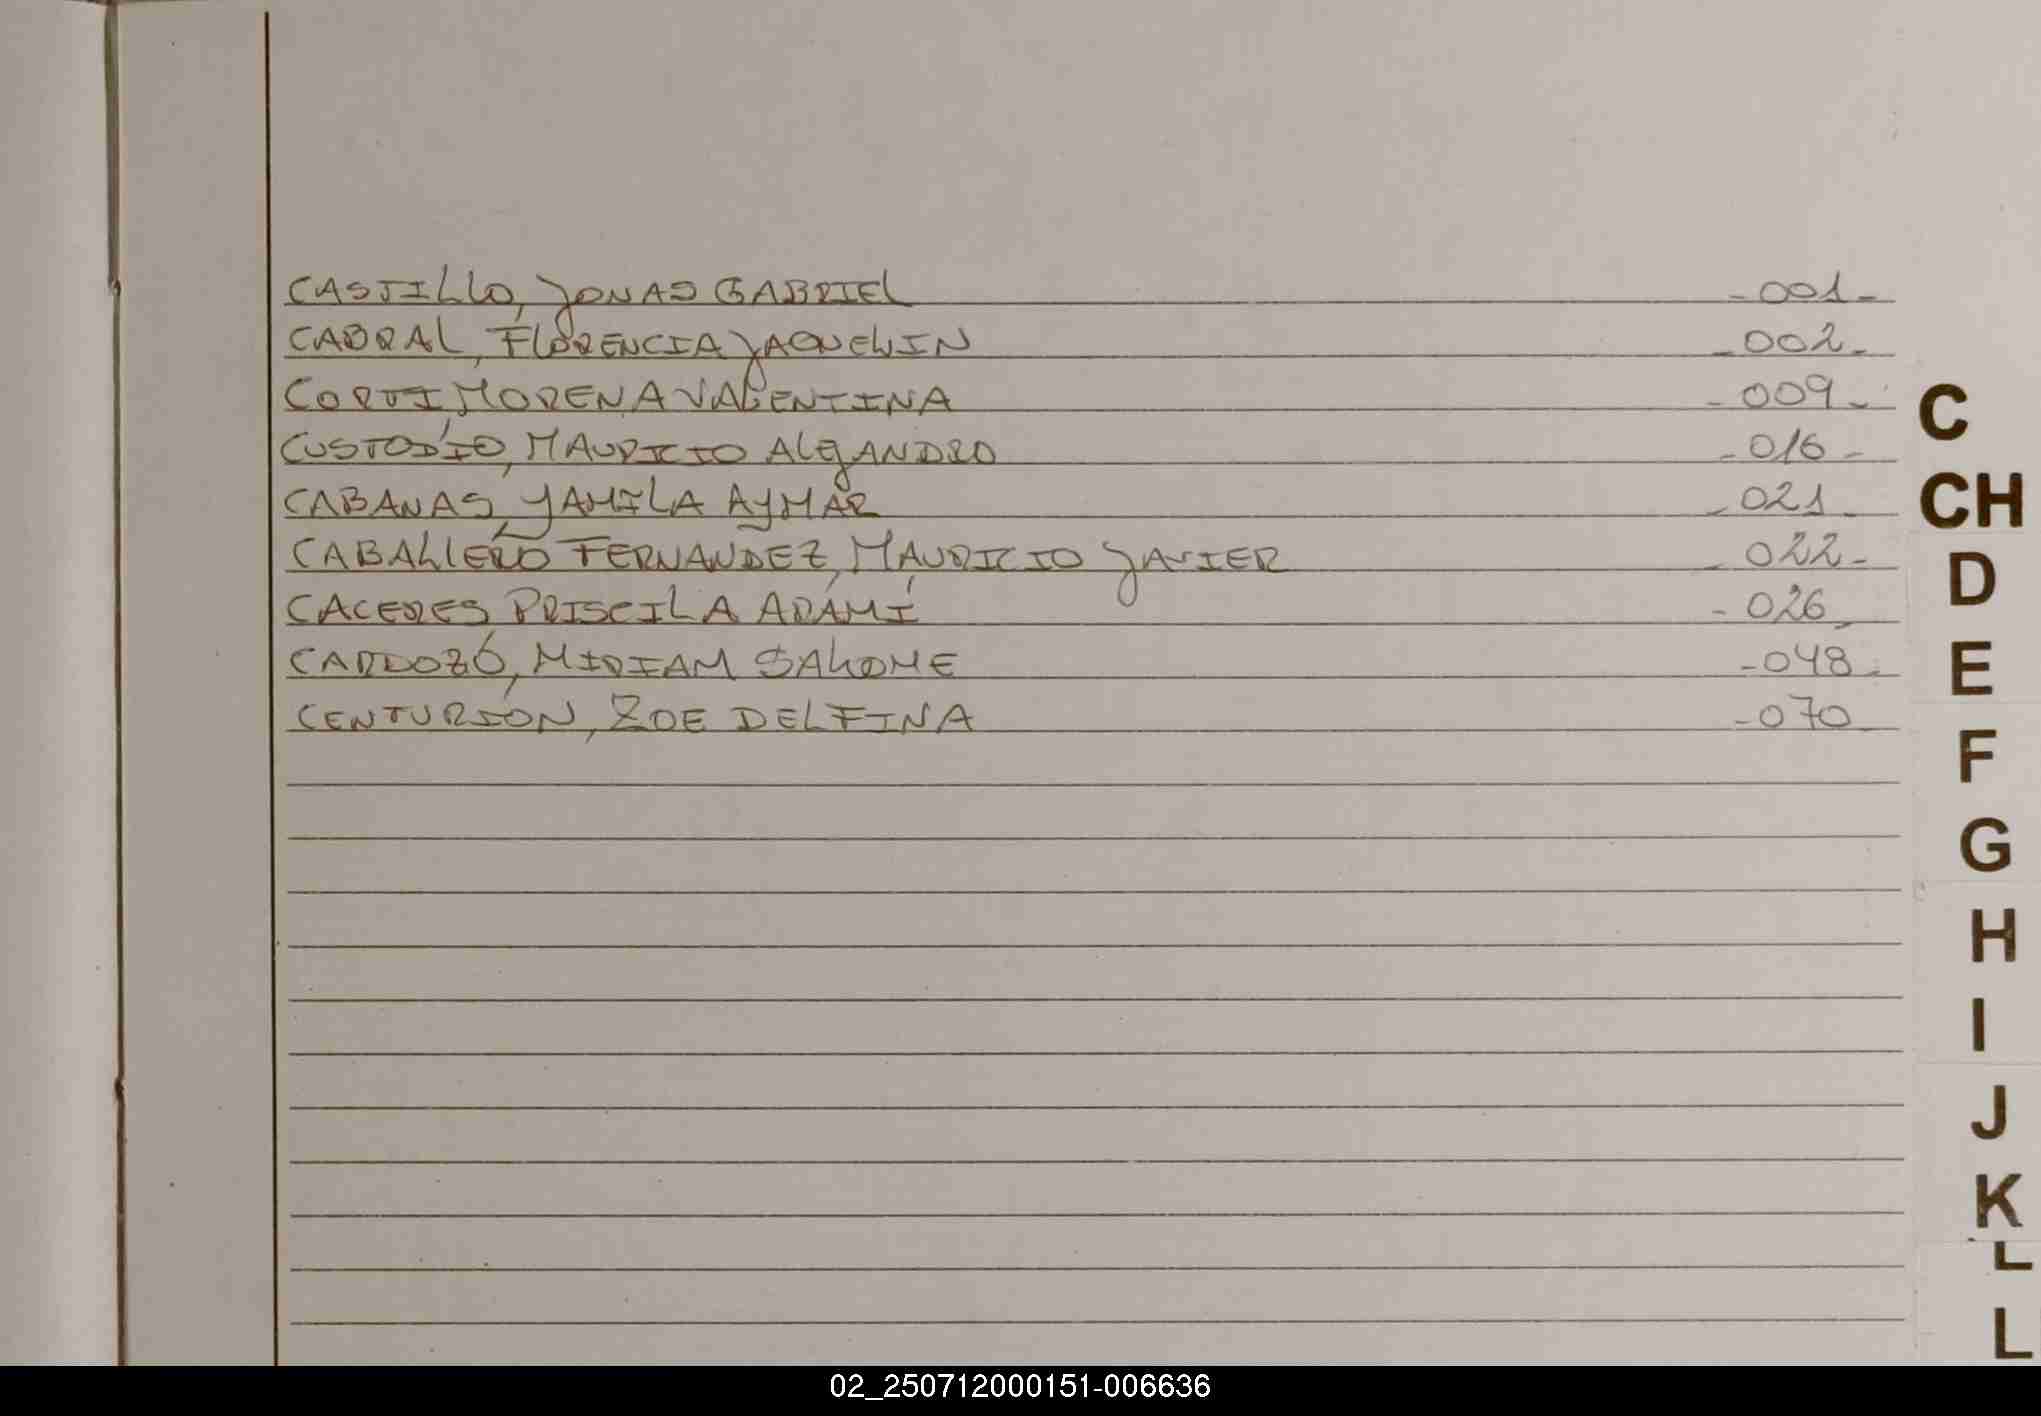 CASTILLO, JONAS GABRIEL -001-
CABRAL, FLORENCIA JAQUELIN -002-
CORTI, MORENA VALENTINA -009-
CUSTODIO, MAURICIO ALEJANDRO -016-
CABANAS, YAMILA AYMAR -021-
CABALLERO FERNANDEZ, MAURICIO JAVIER -022-
CACERES PRISCILA ARAMÍ -026-
CARDOZO, MIRIAM SALOME -048-
CENTURIÓN, ZOE DELFINA -070-
C
CH
D
E
F
G
H
I
J
K
L
L
02_250712000151-006636